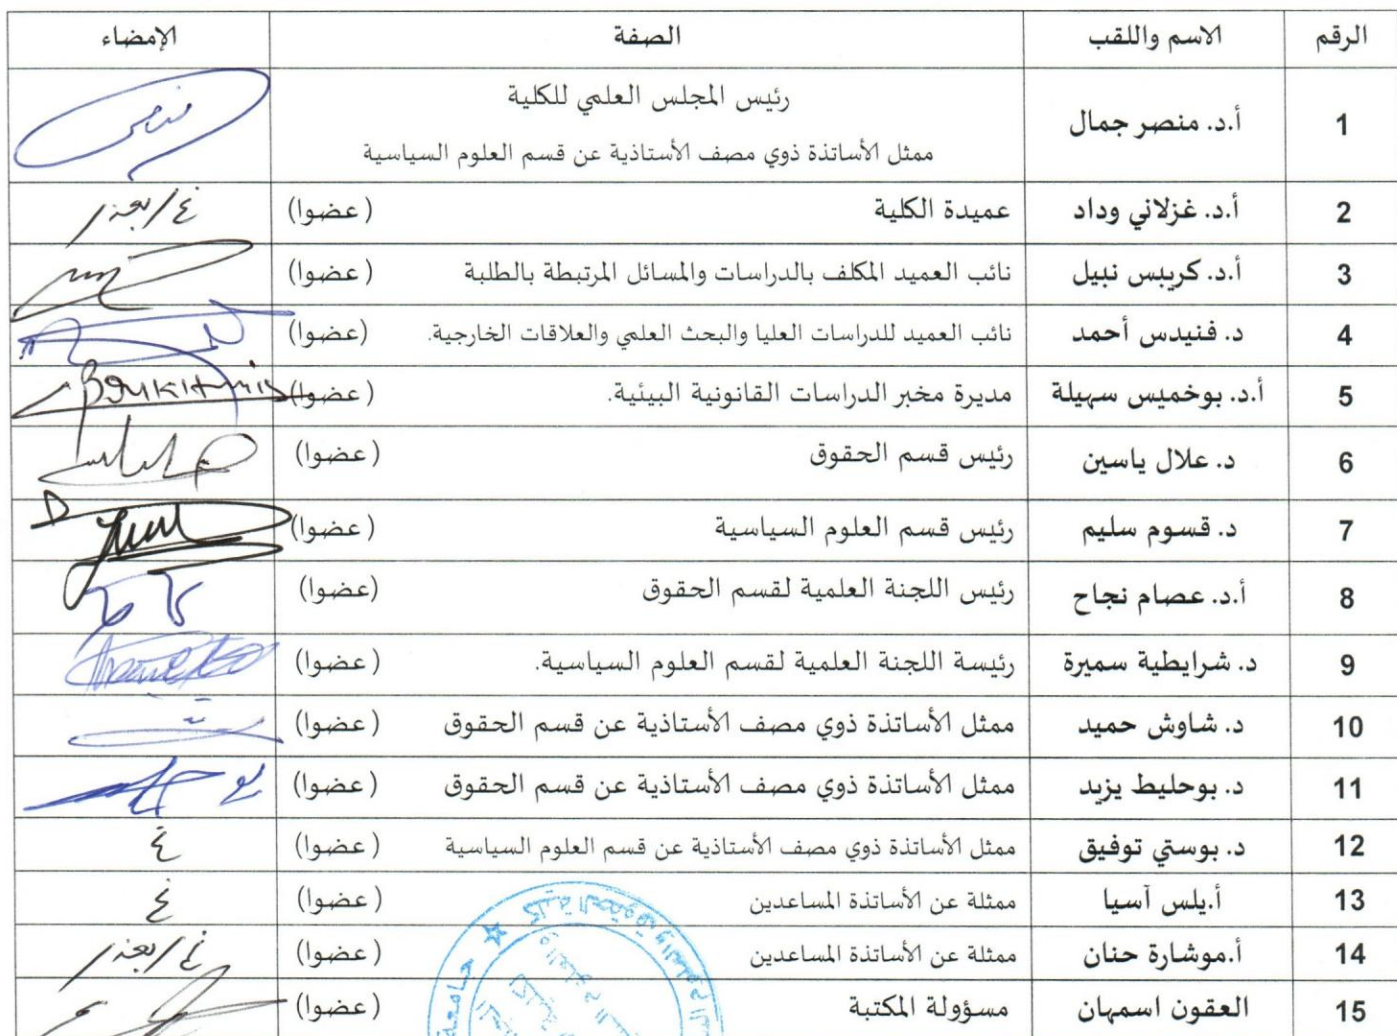 الرقم الاسم واللقب الصفة الإمضاء
1 أ.د. منصر جمال رئيس المجلس العلمي للكلية
ممثل الأساتذة ذوي مصف الأستاذية عن قسم العلوم السياسية
2 أ.د. غزلاني وداد عميدة الكلية (عضوا) غ/بعذر
3 أ.د. كريبس نبيل نائب العميد المكلف بالدراسات والمسائل المرتبطة بالطلبة (عضوا)
4 د. فنيدس أحمد نائب العميد للدراسات العليا والبحث العلمي والعلاقات الخارجية. (عضوا)
5 أ.د. بوخميس سهيلة مديرة مخبر الدراسات القانونية البيئية. (عضوا) Boukhmis
6 د. علال ياسين رئيس قسم الحقوق (عضوا)
7 د. قسوم سليم رئيس قسم العلوم السياسية (عضوا)
8 أ.د. عصام نجاح رئيس اللجنة العلمية لقسم الحقوق (عضوا)
9 د. شرايطية سميرة رئيسة اللجنة العلمية لقسم العلوم السياسية. (عضوا)
10 د. شاوش حميد ممثل الأساتذة ذوي مصف الأستاذية عن قسم الحقوق (عضوا)
11 د. بوحليط يزيد ممثل الأساتذة ذوي مصف الأستاذية عن قسم الحقوق (عضوا)
12 د. بوستي توفيق ممثل الأساتذة ذوي مصف الأستاذية عن قسم العلوم السياسية (عضوا) غ
13 أ.يلس آسيا ممثلة عن الأساتذة المساعدين (عضوا) غ
14 أ.موشارة حنان ممثلة عن الأساتذة المساعدين (عضوا) غ/بعذر
15 العقون اسمهان مسؤولة المكتبة (عضوا)